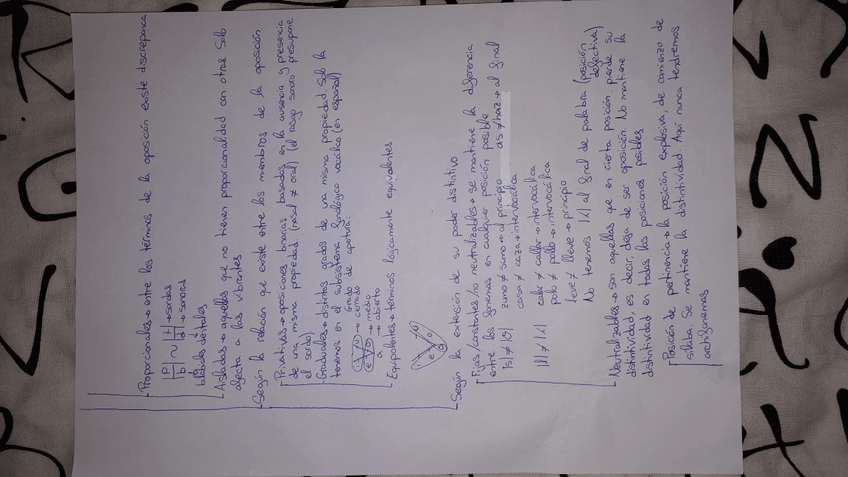 - Proporcionales → entre los términos de la oposición existe discrepancia
p/b ~ t/d → sordas → sonoras
bilabiales dentales
- Aisladas → aquellas que no tienen proporcionalidad con otras. Solo
afecta a las vibrantes
- Según la relación que existe entre los miembros de la oposición
Privativas → oposiciones binarias basadas en la ausencia y presencia
de una misma propiedad (nasal ≠ oral) (el rasgo sonoro presupone
el sordo)
- Graduales → distintos grados de una misma propiedad. Solo la
tenemos en el subsistema fonológico vocálico (en español)
Grado de apertura:
i u → cerrado
e o → medio
a → abierto
Equipolentes → términos lógicamente equivalentes
i u
e o
a
- Según la extensión de su poder distintivo
Fijas/constantes/no neutralizables → se mantiene la diferencia
entre los fonemas en cualquier posición posible
|s| ≠ |θ| zumo ≠ sumo → al principio as ≠ haz → al final
casa ≠ caza → intervocálica
|l| ≠ |ʎ| calar ≠ callar → intervocálica
polo ≠ pollo → intervocálica
leve ≠ lleve → principio
No tenemos |ʎ| al final de palabra (posición
defectiva)
- Neutralizables → son aquellas que en cierta posición pierde su
distintividad, es decir, deja de ser oposición. No mantiene la
distintividad en todas las posiciones posibles
Posición de pertinencia → la posición explosiva, de comienzo de
sílaba. Se mantiene la distintividad. Aquí nunca tendremos
archifonemas